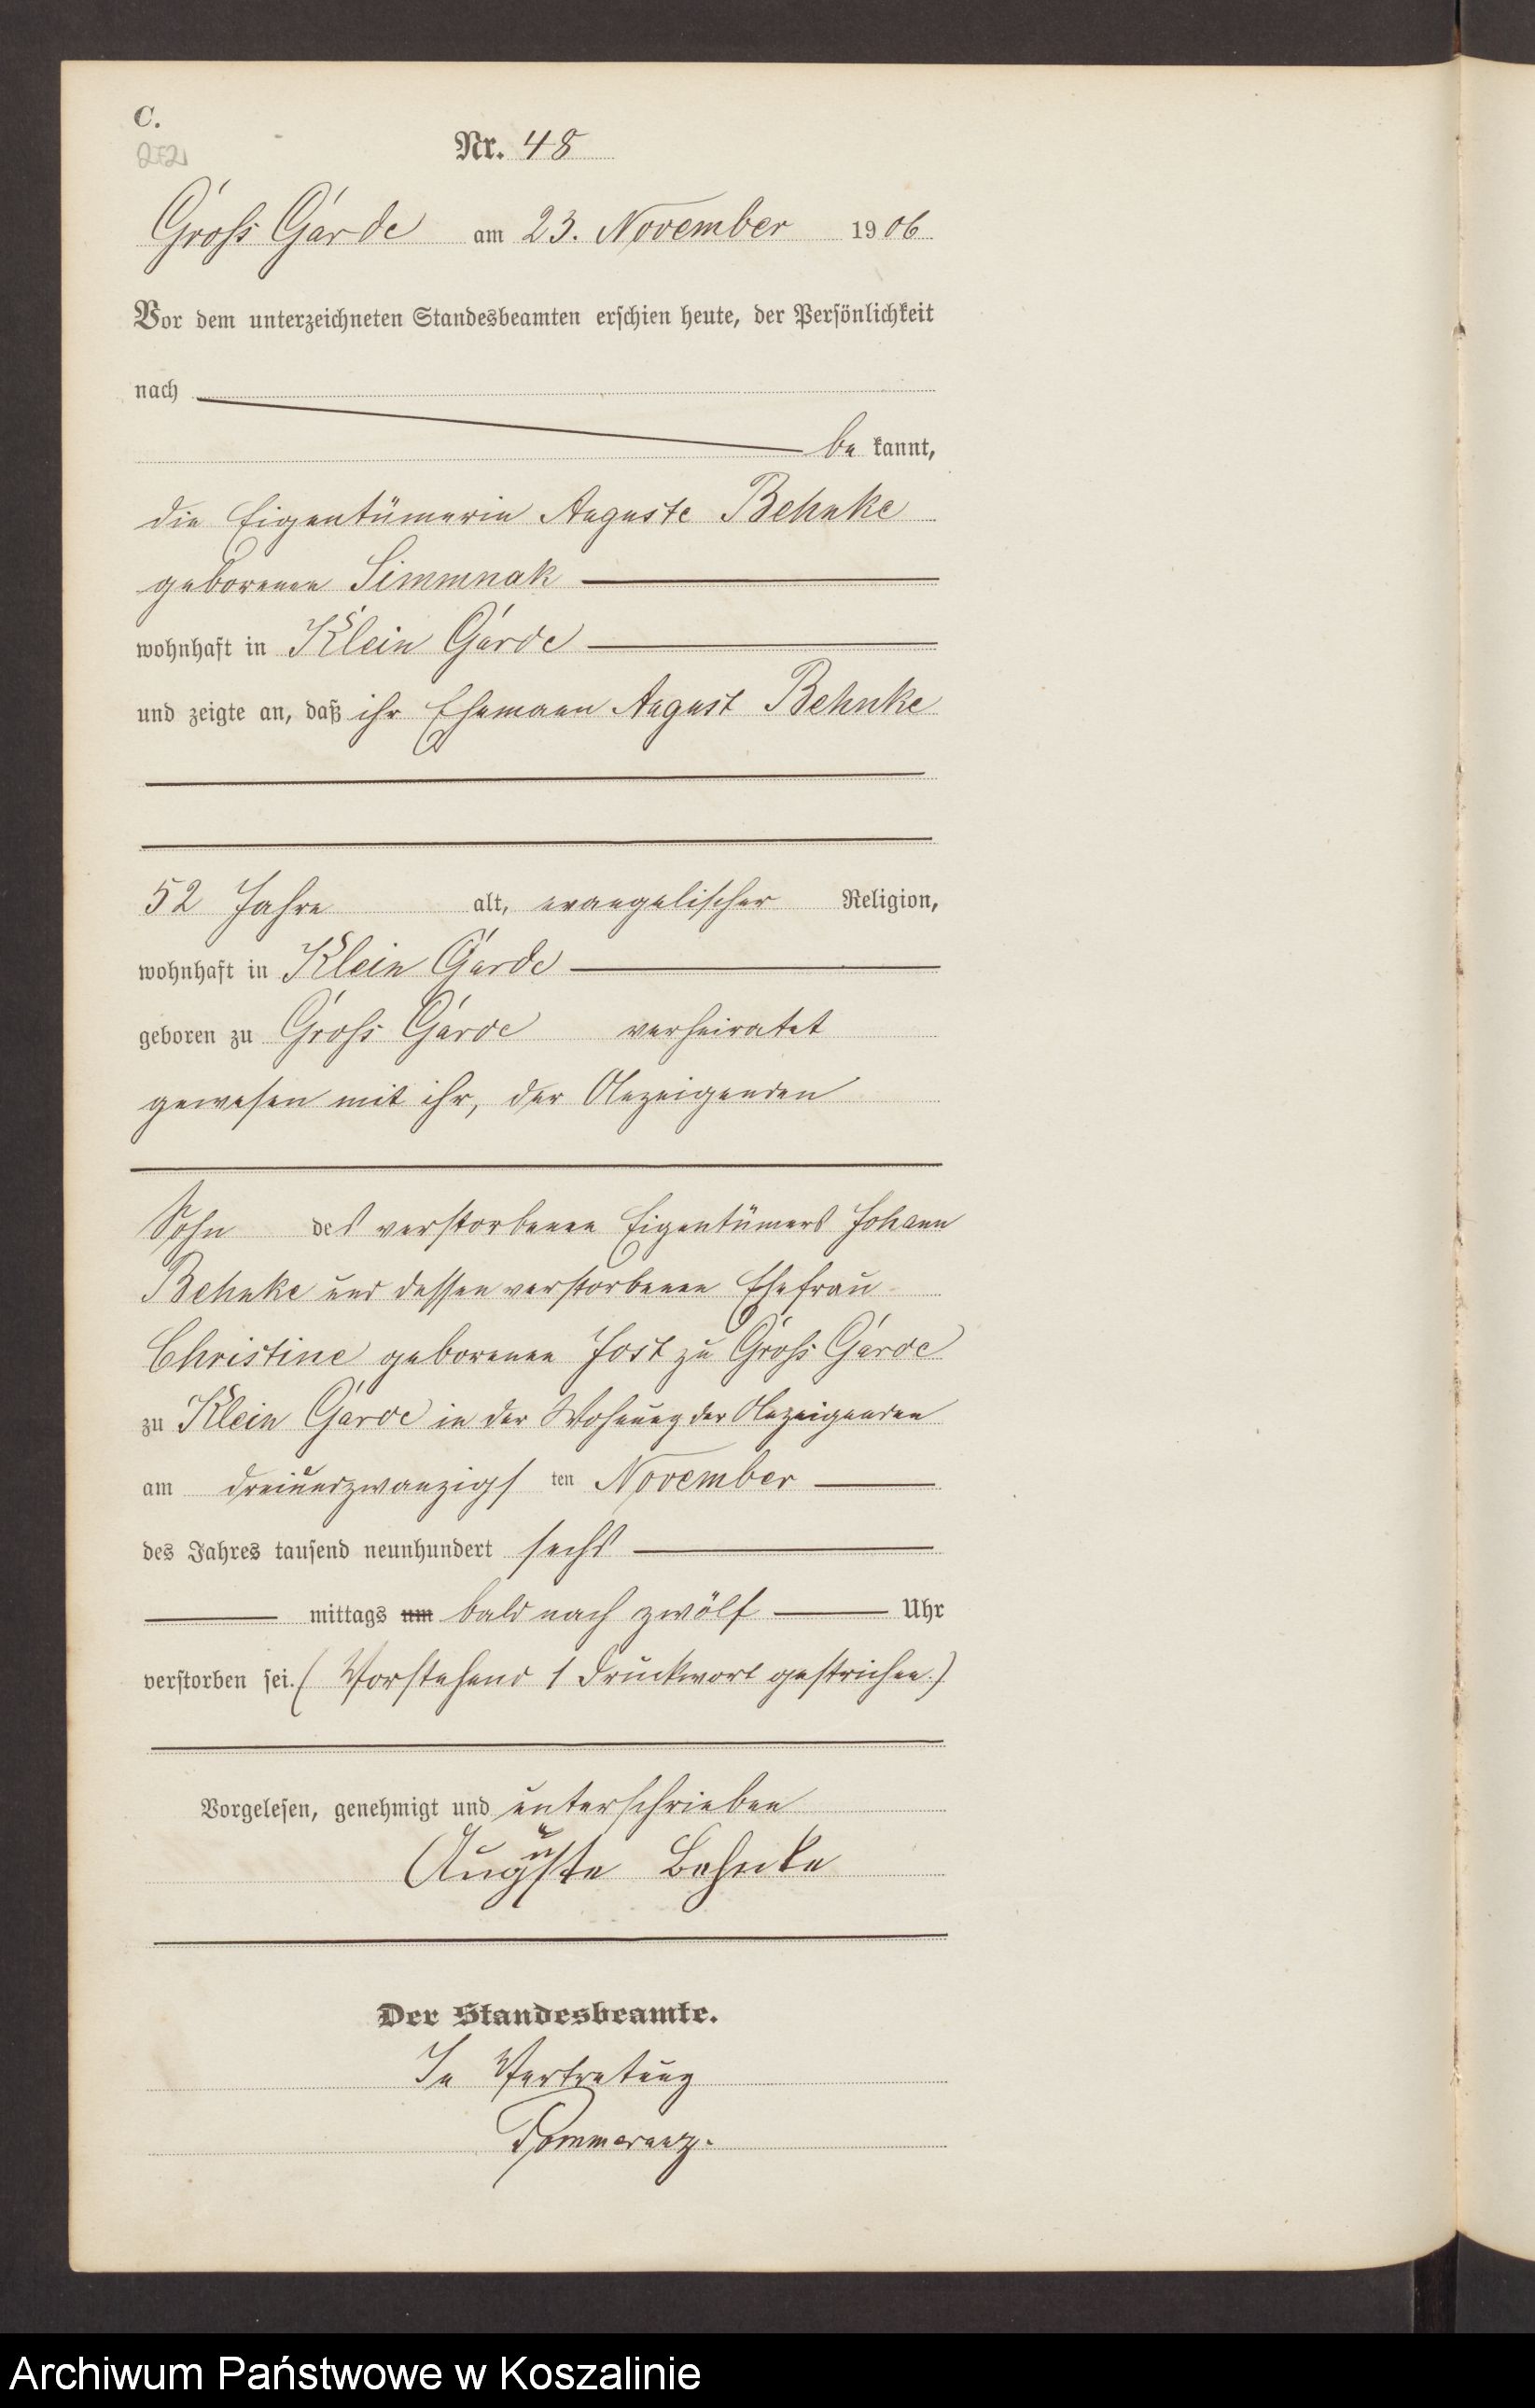 C.
Nr. 48
Gross Garde am 23. November 1906
Vor dem unterzeichneten Standesbeamten erschien heute, der Persönlichkeit
nach
be kannt,
die Eigentümerin Auguste Behnke
geborenen Simmnak
wohnhaft in Klein Garde
und zeigte an, daß ihr Ehemann August Behnke
52 Jahre alt, evangelischer Religion,
wohnhaft in Klein Garde
geboren zu Gross Garde verheiratet
gewesen mit ihr, der Anzeigenden
Sohn des verstorbenen Eigentümers Johann
Behnke und dessen verstorbenen Ehefrau
Christine geborenen Jost zu Gross Garde
zu Klein Garde in der Wohnung der Anzeigenden
am dreiundzwanzigs ten November
des Jahres tausend neunhundert sechs
mittags um bald nach zwölf Uhr
verstorben sei. (Vorstehend 1 Druckwort gestrichen.)
Vorgelesen, genehmigt und unterschrieben
Auguste Behnke
Der Standesbeamte.
In Vertretung
Pommerenz.
Archiwum Państwowe w Koszalinie